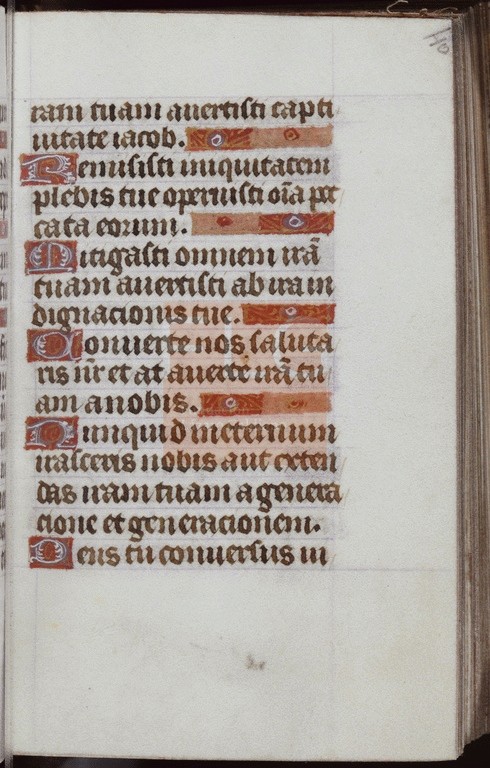 ram tuam auertisti capti
uitate iacob.
Remisisti iniquitatem
plebis tue operuisti oīa pec
cata eorum.
Mitigasti omnem irā
tuam auertisti ab ira in
dignacionis tue.
Conuerte nos saluta
ris nr̄ et at auerte irā tu
am a nobis.
Nunquid ineternum
irasceris nobis aut exten
das iram tuam a genera
cione et generacionem.
Deus tu conuersus ui